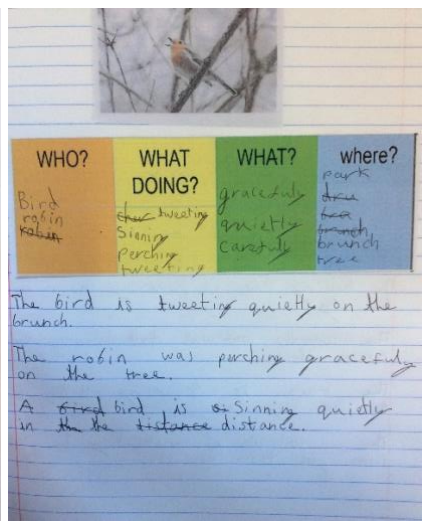 WHO?
Bird
robin
robin
WHAT
DOING?
tweeting
Sinning
perching
tweeting
WHAT?
gracefuly
quietly
carefuly
where?
park
tree
tree
branch
brunch
tree
The bird is tweeting quietly on the
brunch.
The robin was perching gracefuly
on the tree.
A bird bird is Sinning quietly
in the the distance distance.